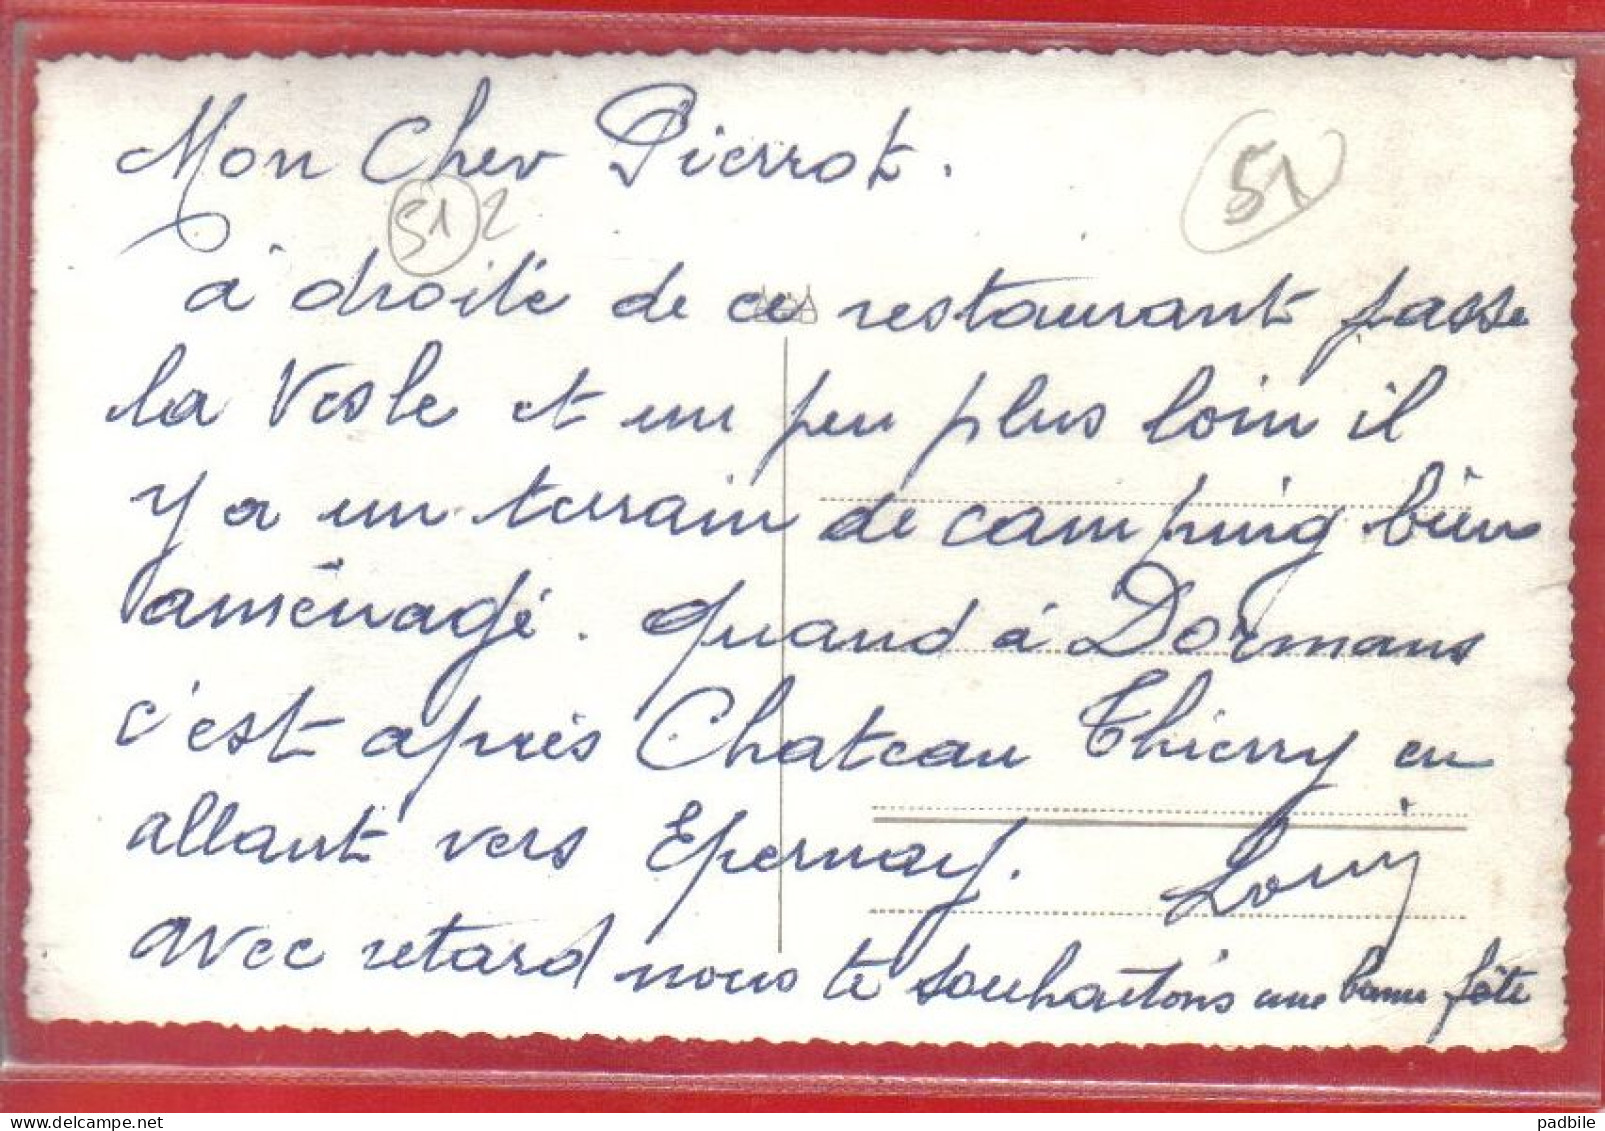 Mon Cher Pierrot.
51 2
51
à droite de ce restaurant passe
la Vesle et un peu plus loin il
y a un terrain de camping bien
aménagé. Quand à Dormans
c'est après Chateau Thierry en
allant vers Epernay.
Louis
avec retard nous te souhaitons une bonne fête
padbile